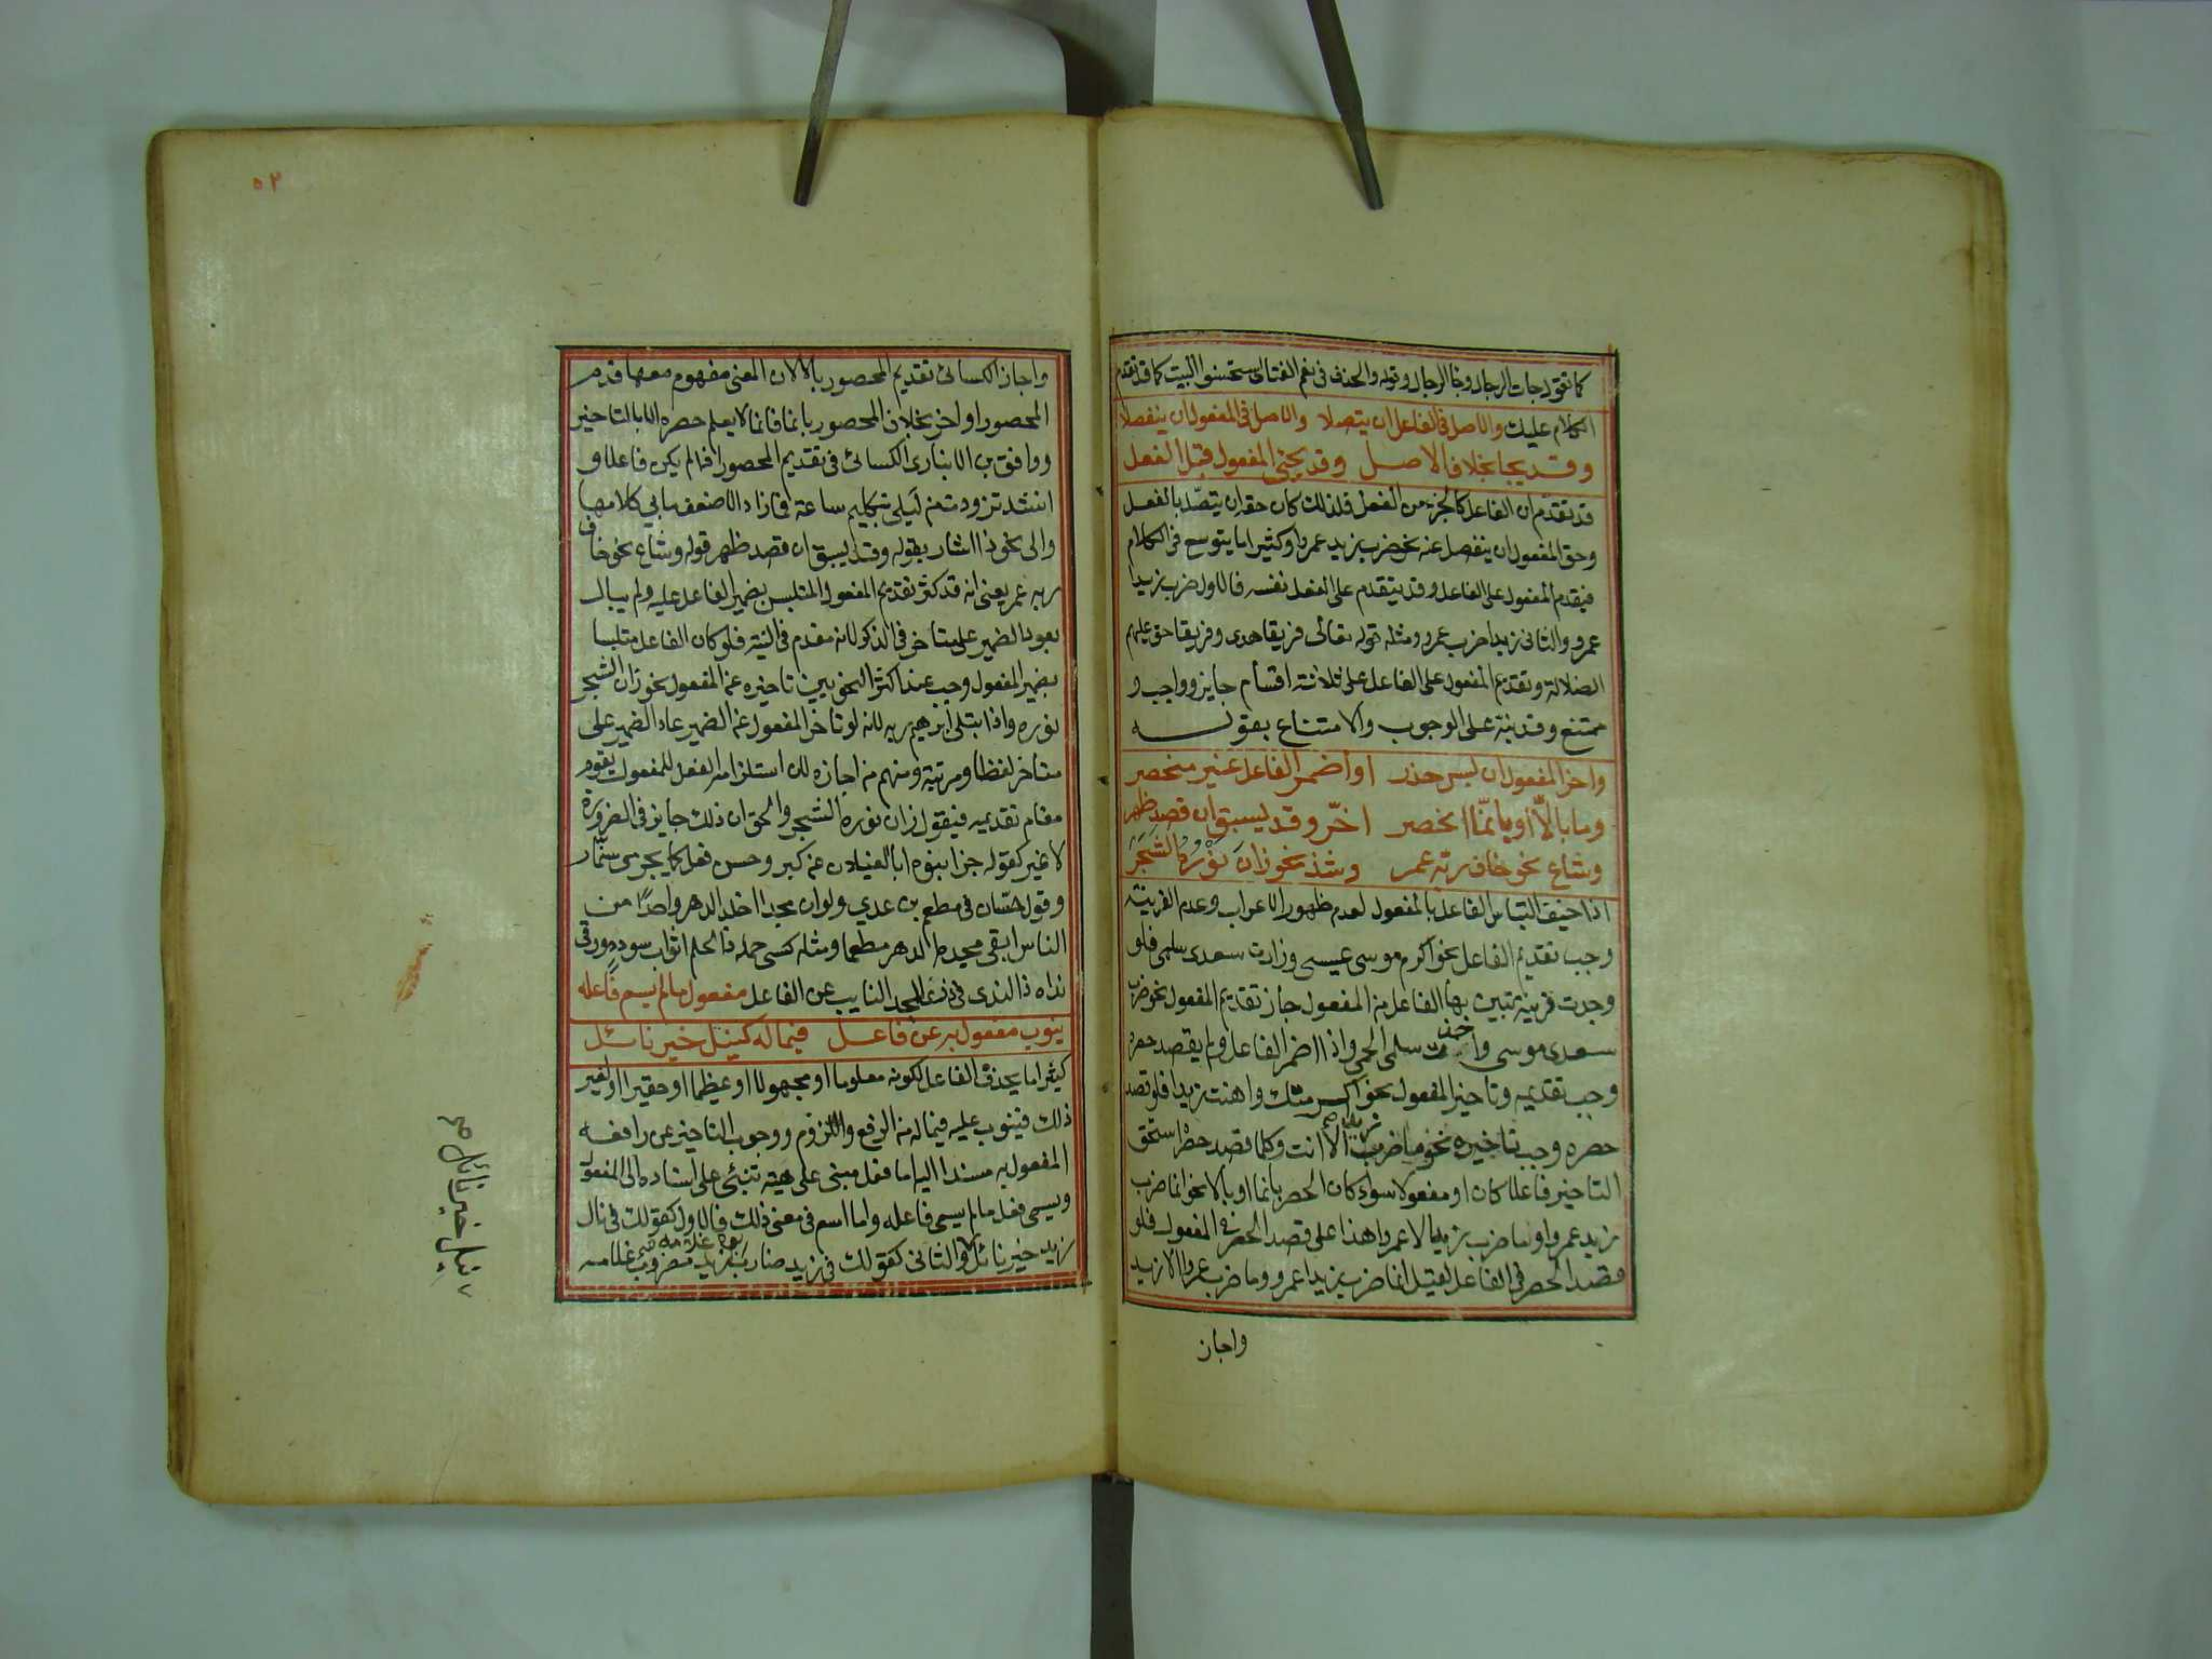 كما تقول جات الرجال وجا الرجال وقوله والحذف في نعم الفتاة استحسنوا البيت كما قد تقدم
الكلام عليك والاصل في الفاعل ان يتصلا والاصل في المفعول ان ينفصلا
وقد يجا بخلاف الاصل وقد يجئ المفعول قبل الفعل
قد تقدم ان الفاعل كالجزء من الفعل فلذلك كان حقه ان يتصل بالفعل
وحق المفعول ان ينفصل عنه نحو ضرب زيد عمروا وكثيرا ما يتوسع في الكلام
فيقدم المفعول على الفاعل وقد يتقدم على الفعل نفسه فالاول ضرب زيدا
عمرو والثاني زيدا ضرب عمرو ومثله قوله تعالى فريقا هدى وفريقا حق عليهم
الضلالة وتقديم المفعول على الفاعل على ثلاثة اقسام جايز وواجب و
ممتنع وقد نبه على الوجوب والامتناع بقوله
واخر المفعول ان لبس حذر او اضمر الفاعل غير منحصر
وما بالّا او بانّما انحصر اخّر وقد يسبق ان قصد ظهر
وشاع نحو خاف ربه عمر وشذ نحو زان نَوْرُهُ الشجَرَ
اذا خيف التباس الفاعل بالمفعول لعدم ظهور الاعراب وعدم القرينة
وجب تقديم الفاعل نحو اكرم موسى عيسى وزارت سعدى سلمى فلو
وجدت قرينة تبين بها الفاعل من المفعول جاز تقديم المفعول نحو ضربت
سعدى موسى واضنت سلمى الحمى واذا اضمر الفاعل ولم يقصد حصره
وجب تقديمه وتاخير المفعول نحو اكرمتك واهنت زيدا فلو قصد
حصره وجب تاخيره نحو ما ضرب زيدا الا انت وكلما قصد حصره استحق
التاخير فاعلا كان او مفعولا سواء كان الحصر بانما او بالا نحو انما ضرب
زيد عمروا وما ضرب زيد الا عمروا هذا على قصد الحصر في المفعول فلو
قصد الحصر في الفاعل لقيل انما ضرب زيدا عمرو وما ضرب عمروا الا زيد
واجاز
٥٢
واجاز الكسائي تقديم المحصور بالا لان المعنى مفهوم معها قدم
المحصور او اخر بخلاف المحصور بانما فانما لا يعلم حصره الا بالتاخير
ووافق بن الانباري الكسائي في تقديم المحصور اذا لم يكن فاعلا و
انشد تزودت من ليلى بتكليم ساعة فما زاد الا ضعف ما بي كلامها
والى نحو ذا اشار بقوله وقد يسبق ان قصد ظهر قوله وشاع نحو خاف
ربه عمر يعني انه قد كثر تقديم المفعول المتلبس بضمير الفاعل عليه ولم يبال
بعود الضمير على متاخر في الذكر لانه مقدم في النية فلو كان الفاعل متلبسا
بضمير المفعول وجب عند اكثر النحويين تاخيره عن المفعول نحو زان الشجر
نوره واذا ابتلى ابرهيم ربه لانه لو تاخر المفعول عن الضمير عاد الضمير على
متاخر لفظا ومرتبة ومنهم من اجازه لان استلزام الفعل للمفعول يقوم
مقام تقديمه فيقول زان نوره الشجر والحق ان ذلك جايز في الضرورة
لا غير كقوله جزا بنوه ابا الغيلان عن كبر وحسن فعل كما يجزى سنمار
وقول حسّان في مطعم بن عدي ولو ان مجدا اخلد الدهر واحدًا من
الناس ابقى مجده الدهر مطعما ومثله كسى حلمه ذا الحلم اثواب سودد ورقى
نداه ذا الندى في ذرى المجد النايب عن الفاعل مفعول ما لم يسم فاعله
ينوب مفعول به عن فاعل فيما له كنيل خير نائل
كثيرا ما يحذف الفاعل لكونه معلوما او مجهولا او عظيما او حقيرا او لغير
ذلك فينوب عليه فيما له من الرفع واللزوم ووجوب التاخير عن رافعه
المفعول به مسندا اليه اما فعل مبني على هيئة تنبئ على اسناده الى المفعول
ويسمى فعل ما لم يسمى فاعله واما اسم في معنى ذلك فالاول كقولك في نال
زيد خير نائل والثاني كقولك في زيد ضارب زيد مضروب غلامه
نيل خير نائل صح